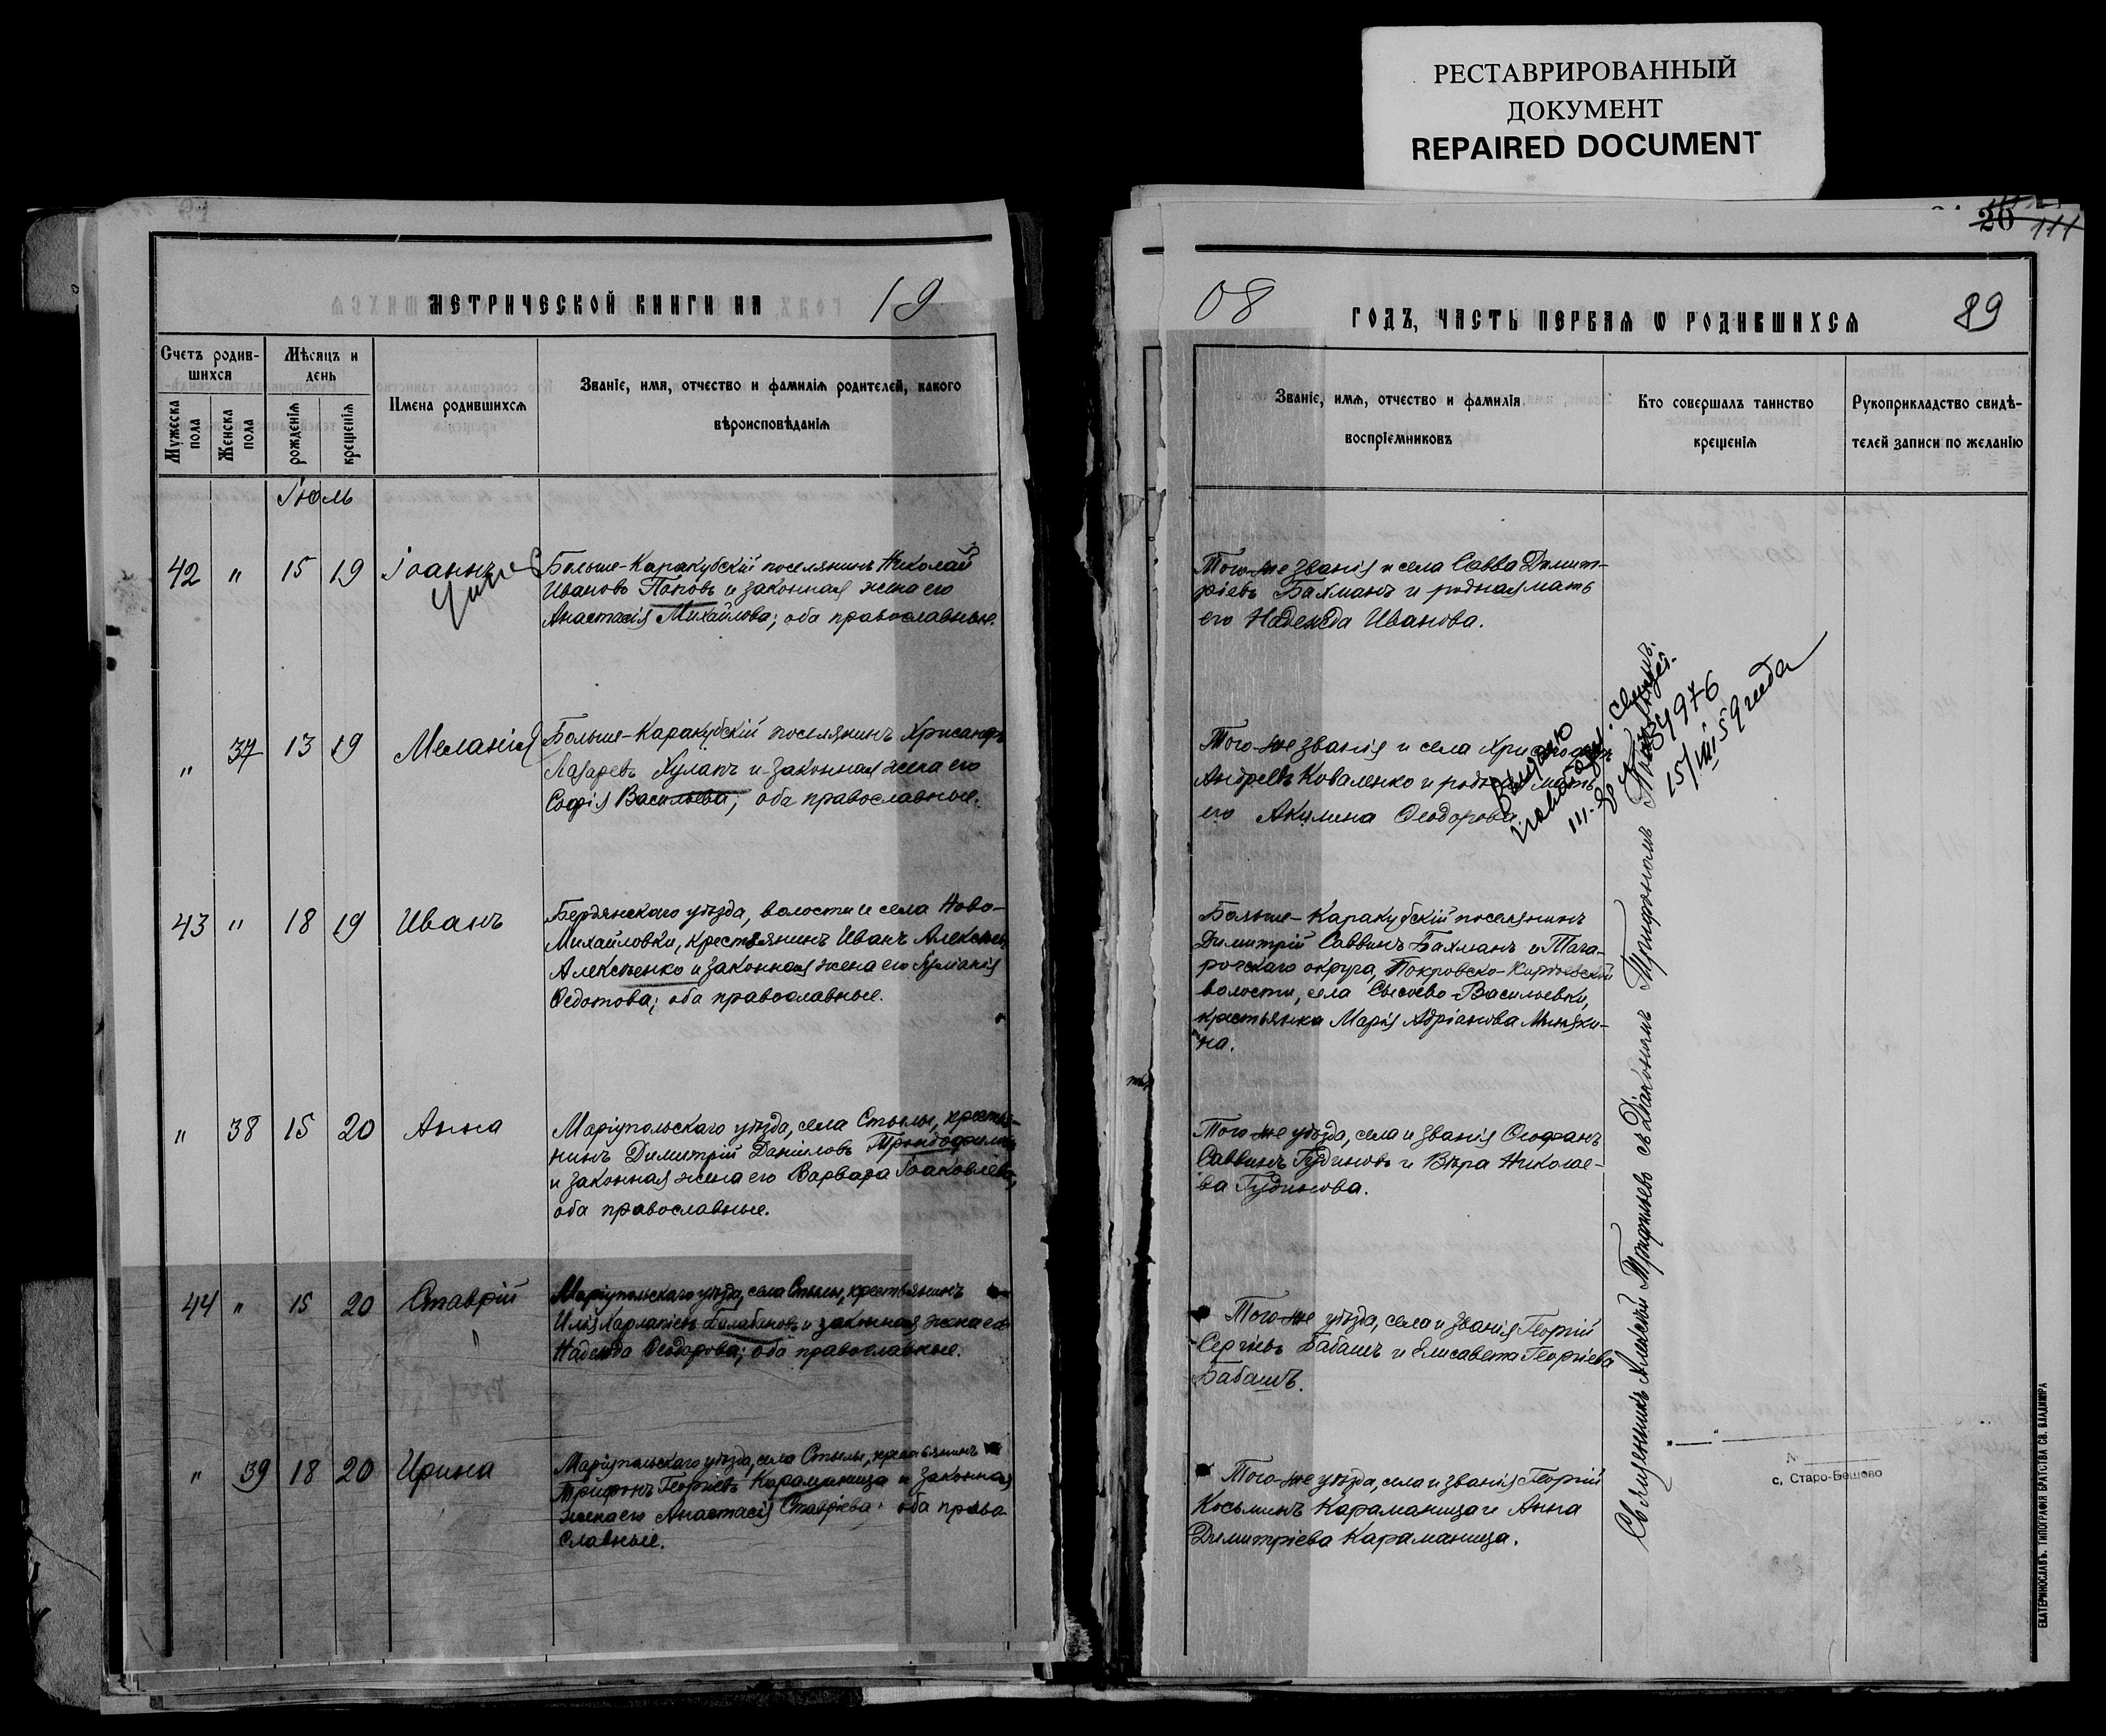 РЕСТАВРИРОВАННЫЙ
ДОКУМЕНТ
REPAIRED DOCUMENT
МЕТРИЧЕСКОЙ КНИГИ НА 19
Счетъ родив-
шихся
Мѣсяцъ и
день
Мужеска
пола
Женска
пола
рожденія
крещенія
Имена родившихся
Званіе, имя, отчество и фамилія родителей, какого
вѣроисповѣданія
Іюль
42 " 15 19 Іоаннъ
Больше-Каракубскій поселянинъ Николай
Ивановъ Поповъ и законная жена его
Анастасія Михайлова; оба православные.
" 37 13 19 Меланія
Больше-Каракубскій поселянинъ Хрисанфъ
Лазаревъ Хулахъ и законная жена его
Софія Васильева; оба православные.
43 " 18 19 Иванъ
Бердянскаго уѣзда, волости и села Ново-
Михайловки, крестьянинъ Иванъ
Алексѣенко и законная жена его
Ѳедотова; оба православные.
" 38 15 20 Анна
Маріупольскаго уѣзда, села Стылы, крестья-
нинъ Димитрій Даніиловъ
и законная жена его Варвара Іаковлева;
оба православные.
44 " 15 20 Ставрій
Маріупольскаго уѣзда, села Стылы, крестьянинъ
Илія Харлапіевъ Балабановъ и законная жена его
Надежда Ѳеодорова; оба православные.
" 39 18 20 Ирина
Маріупольскаго уѣзда, села Стылы, крестьянинъ
Трифонъ Георгіевъ Караманица и законная
жена его Анастасія Ставріева; оба право-
славные.
20 111
08 ГОДЪ, ЧАСТЬ ПЕРВАЯ Ѡ РОДИВШИХСЯ 89
Званіе, имя, отчество и фамилія
воспріемниковъ
Кто совершалъ таинство
крещенія
Рукоприкладство свидѣ-
телей записи по желанію
Того-же званія и села Савва Димит-
ріевъ Бахманъ и родная мать
его Надежда Иванова.
Того-же званія и села
Андреевъ Коваленко и родная мать
его Акилина Ѳеодорова.
Больше-Каракубскій поселянинъ
Димитрій Саввинъ Бахманъ и Тага-
рогскаго округа, Покровско-Кирѣевской
волости, села Сысоево-Васильевки,
крестьянка Марія Адріанова
на.
Того-же уѣзда, села и званія Ѳеофанъ
Саввинъ Гудиновъ и Вѣра Николае-
ва Гудинова.
Того-же уѣзда, села и званія Георгій
Сергіевъ Бабашъ и Елисавета Георгіева
Бабашъ.
Того-же уѣзда, села и званія Георгій
Косьминъ Караманица и Анна
Димитріева Караманица.
Священникъ Алексѣй Трифильевъ съ Діакономъ Трифономъ
Выдано
15/VIII 59 года
№
с. Старо-Бешево
ЕКАТЕРИНОСЛАВЪ. ТИПОГРАФІЯ БРАТСТВА СВ. ВЛАДИМІРА